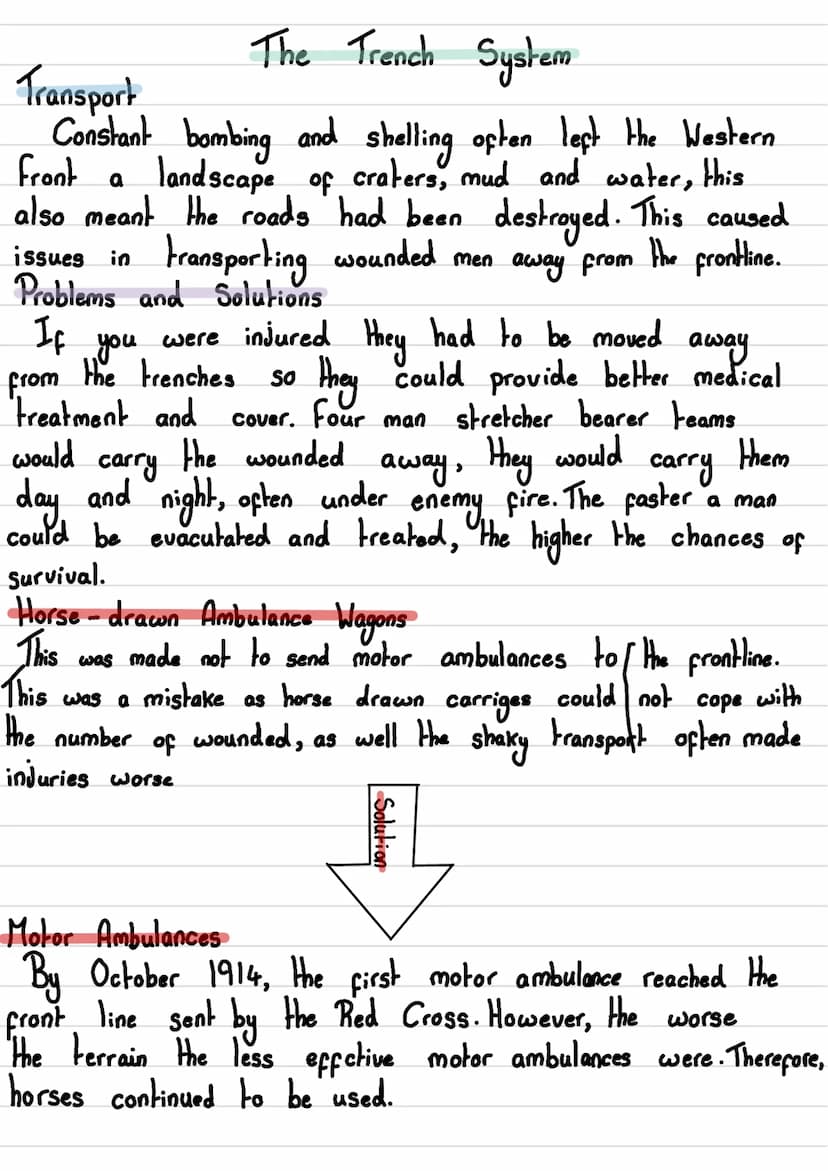 The Trench System
Transport
Constant bombing and shelling often left the Western
front a landscape of craters, mud and water, this
also meant the roads had been destroyed. This caused
issues in transporting wounded men away from the frontline.
Problems and Solutions
If you were injured they had to be moved away
from the trenches so they could provide better medical
treatment and cover. Four man stretcher bearer teams
would carry the wounded away, they would carry them
day and night, often under enemy fire. The faster a man
could be evacutated and treated, the higher the chances of
survival.
Horse-drawn Ambulance Wagons
This was made not to send motor ambulances to the frontline.
This was a mistake as horse drawn carriges could not cope with
the number of wounded, as well the shaky transport often made
injuries worse
Solution
Motor Ambulances
By October 1914, the first motor ambulance reached the
front line sent by the Red Cross. However, the worse
the terrain the less effctive motor ambulances were. Therefore,
horses continued to be used.